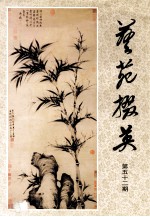 藝苑掇英
第五十二期